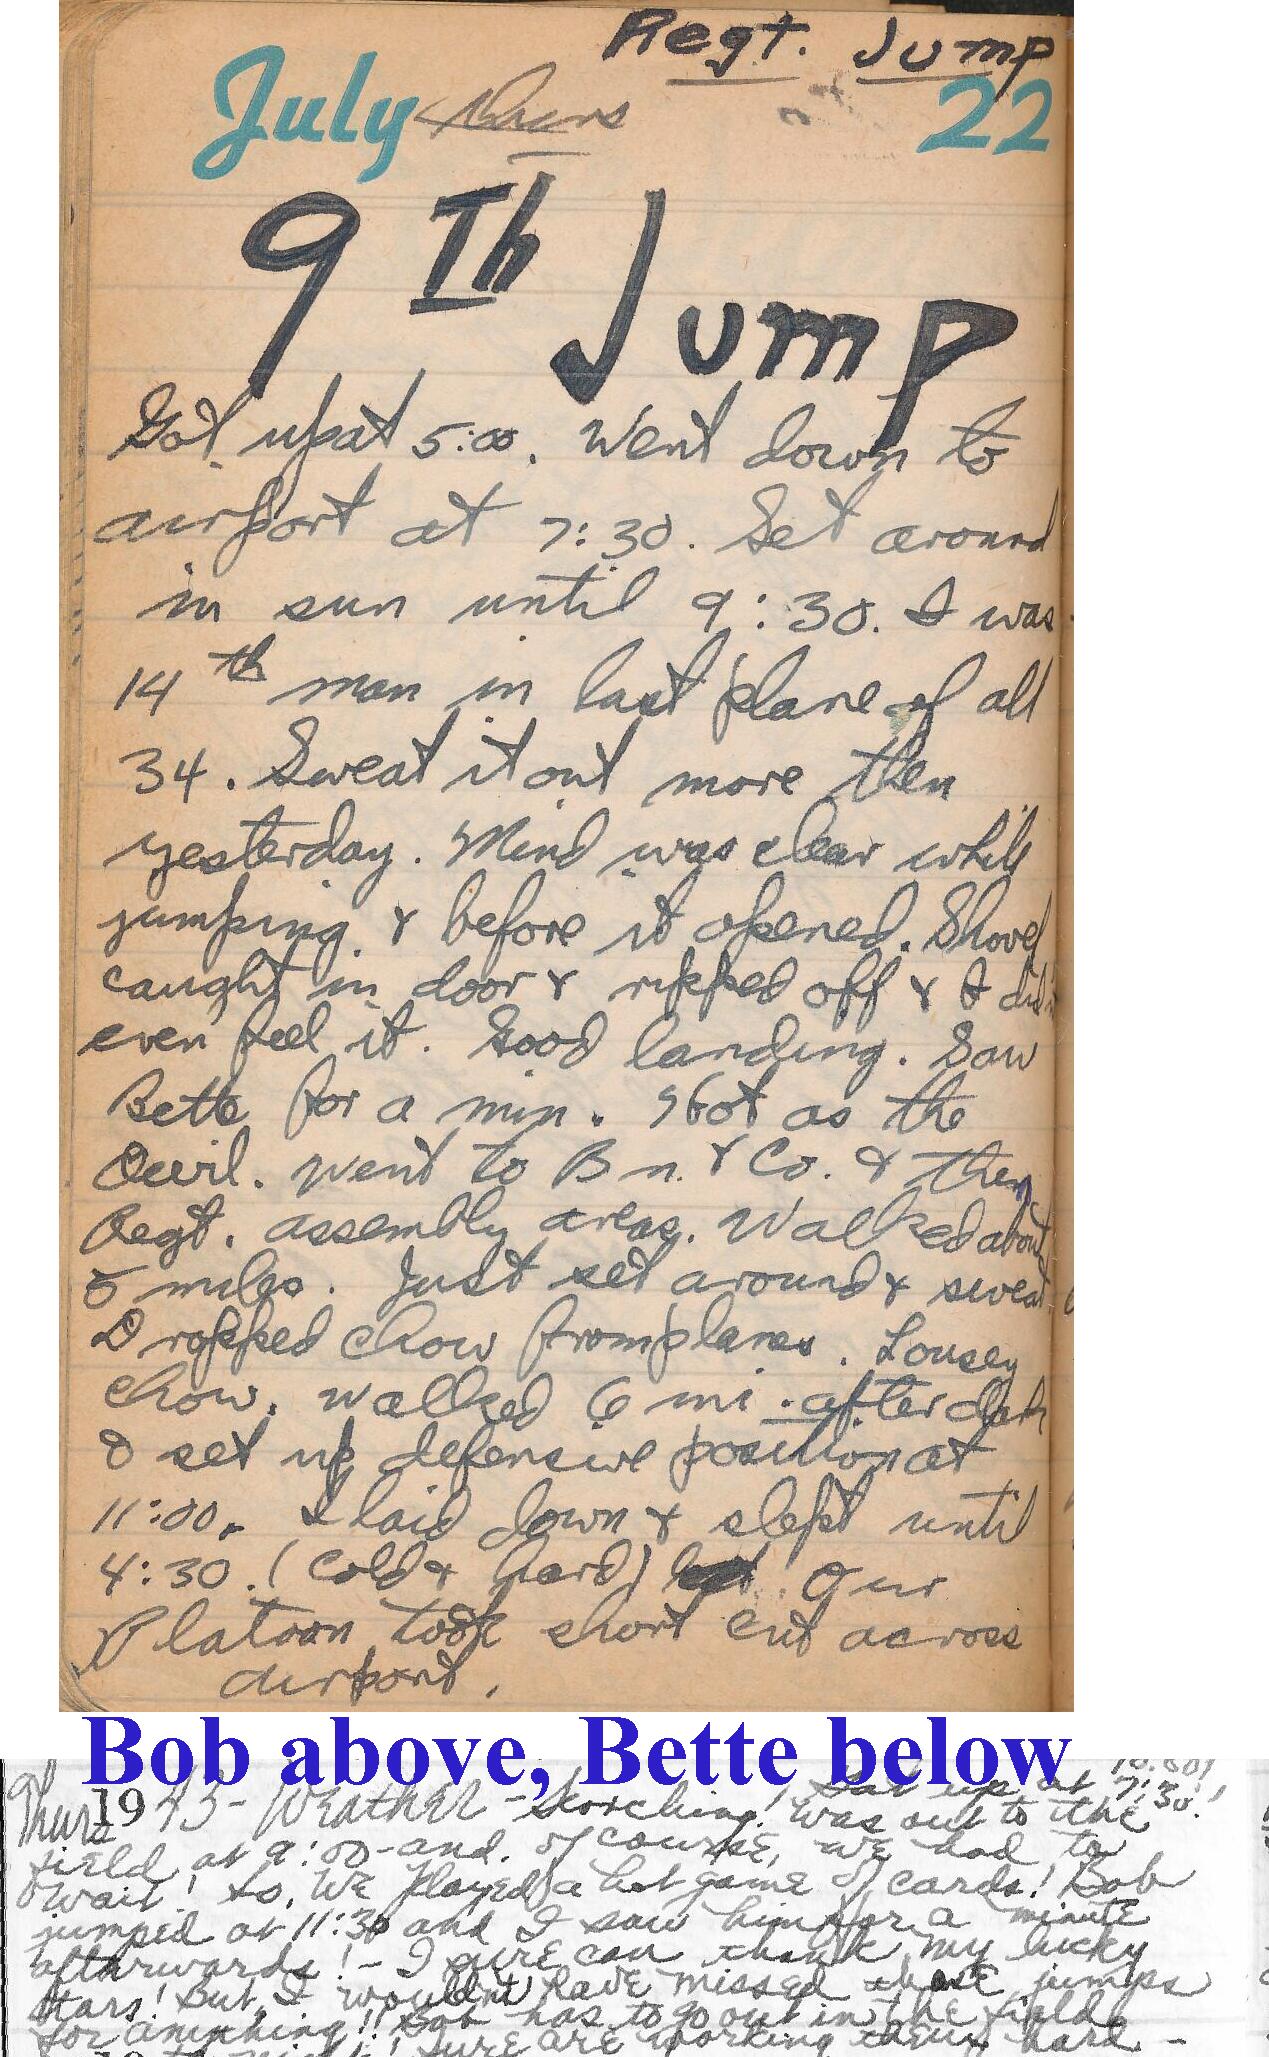 Regt. Jump
July Thurs 22
9Th Jump
Got up at 5:00. Went down to
airport at 7:30. Set around
in sun until 9:30. I was
14th man in last plane of all
34. Sweat it out more then
yesterday. Mind was clear while
jumping & before it opened. Shovel
caught in door & ripped off & I didn't
even feel it. Good landing. Saw
Bette for a min. Hot as the
Devil. Went to Bn. & Co. & then
Regt. assembly areas. Walked about
5 miles. Just set around & sweat
Dropped chow from planes. Lousey
chow. Walked 6 mi. after dark
& set up defensive position at
11:00. I laid down & slept until
4:30. (Cold & hard) Our
Platoon took short cut across
airport.
Bob above, Bette below
10:00!
Thurs 1943 - Weather - Scorching! Sat up at 7:30!
Was out to the
field at 9:00 - and, of course, we had to
wait! So, we played a hot game of cards! Bob
jumped at 11:30 and I saw him for a minute
afterwards! - I sure can thank my lucky
stars! But, I wouldn't have missed those jumps
for anything!! Bob has to go out in the field
tonight! Sure are working them hard -
19